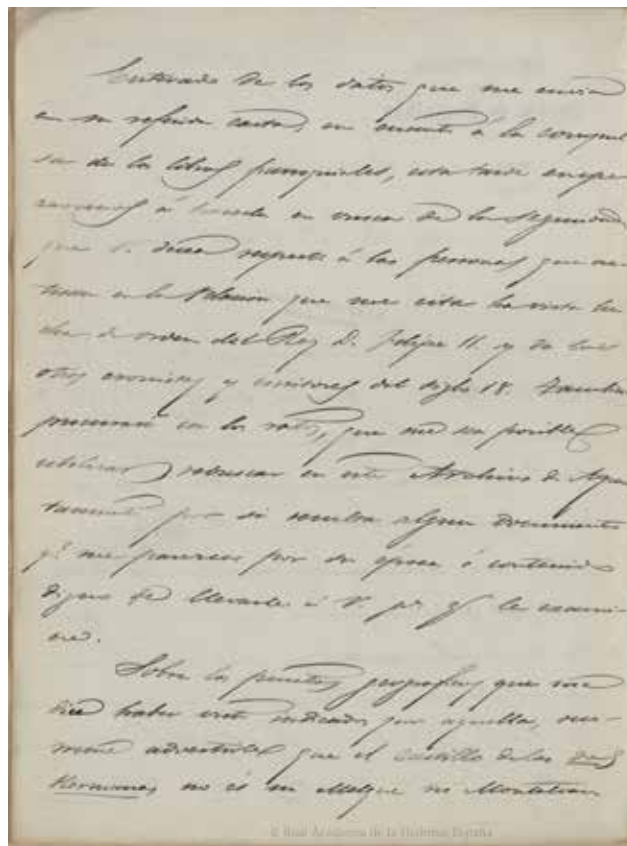 Enterado de los datos que me envia
en su referida carta, en cuanto á la compul
sa de los libros parroquiales, esta tarde empe
zaremos á hacerla en busca de la
que V. desea respecto á las personas que
en la Relacion que
de orden del Rey D. Felipe II. y de los
otros cronistas y escritores del siglo 18. Tambien
procuraré en los ratos, que me sea posible
utilizar, rebuscar en este Archivo de Ayun
tamiento por si encontra algun documento
q.e me parezca por su época ó contenido
digno de llevarle á V. p.a q.e le exami-
ne.
Sobre los puntos geograficos que me
dice haber visto indicados por aquella,
advertirle que el Castillo de las dos
Hermanas, no és ni Melque ni Montalban
© Real Academia de la Historia. España